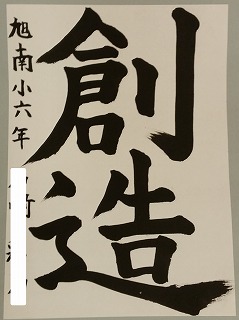 創造
旭南小六年